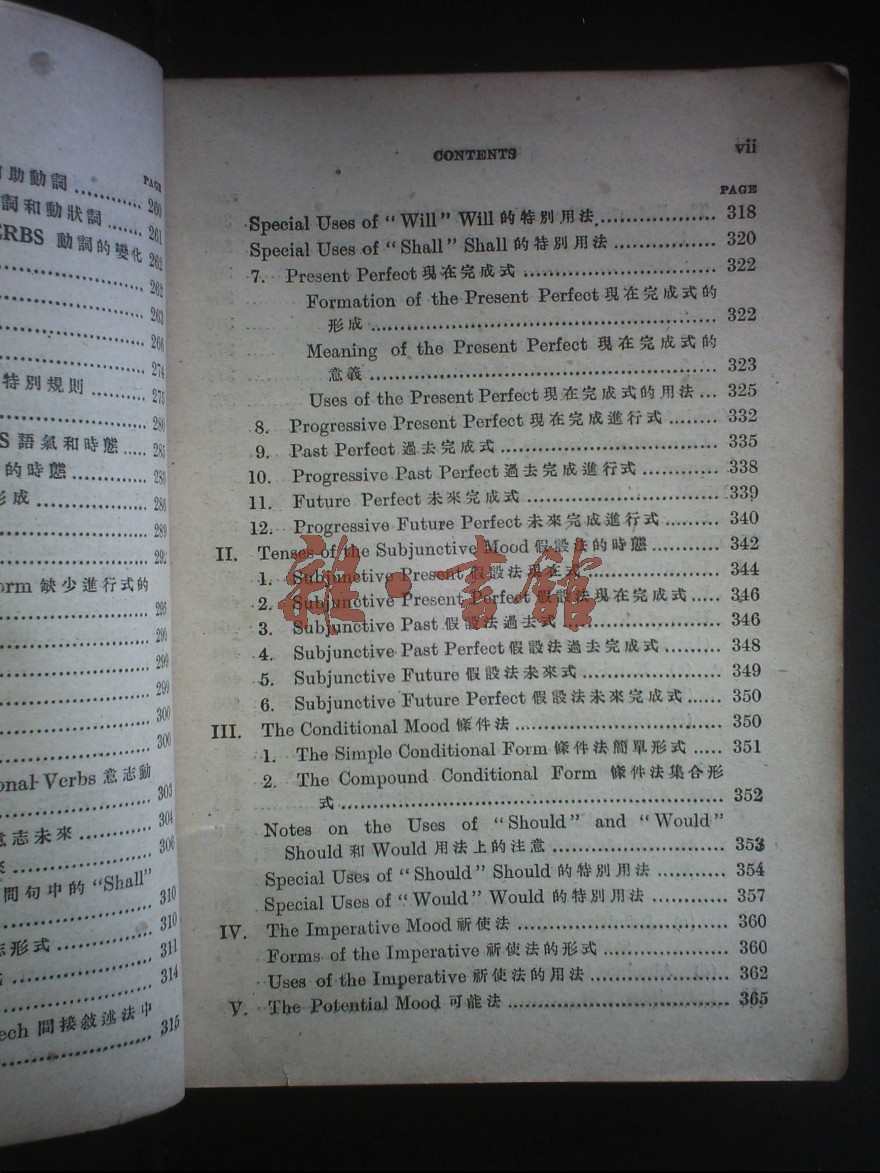 PAGE
助動詞 260
詞和動狀詞 261
ERBS 動詞的變化 262
262
263
266
274
特別規則 275
280
S 語氣和時態 285
的時態 286
形成 288
289
292
orm 缺少進行式的
295
298
299
299
300
300
onal Verbs 意志動
303
意志未來 304
306
問句中的 "Shall"
310
310
形式 311
314
ech 間接敘述法中
315
CONTENTS vii
PAGE
Special Uses of "Will" Will 的特別用法 318
Special Uses of "Shall" Shall 的特別用法 320
7. Present Perfect 現在完成式 322
Formation of the Present Perfect 現在完成式的
形成 322
Meaning of the Present Perfect 現在完成式的
意義 323
Uses of the Present Perfect 現在完成式的用法 325
8. Progressive Present Perfect 現在完成進行式 332
9. Past Perfect 過去完成式 335
10. Progressive Past Perfect 過去完成進行式 338
11. Future Perfect 未來完成式 339
12. Progressive Future Perfect 未來完成進行式 340
II. Tenses of the Subjunctive Mood 假設法的時態 342
1. Subjunctive Present 假設法現在式 344
2. Subjunctive Present Perfect 假設法現在完成式 346
3. Subjunctive Past 假設法過去式 346
4. Subjunctive Past Perfect 假設法過去完成式 348
5. Subjunctive Future 假設法未來式 349
6. Subjunctive Future Perfect 假設法未來完成式 350
III. The Conditional Mood 條件法 350
1. The Simple Conditional Form 條件法簡單形式 351
2. The Compound Conditional Form 條件法集合形
式 352
Notes on the Uses of "Should" and "Would"
Should 和 Would 用法上的注意 353
Special Uses of "Should" Should 的特別用法 354
Special Uses of "Would" Would 的特別用法 357
IV. The Imperative Mood 祈使法 360
Forms of the Imperative 祈使法的形式 360
Uses of the Imperative 祈使法的用法 362
V. The Potential Mood 可能法 365
雜·書館